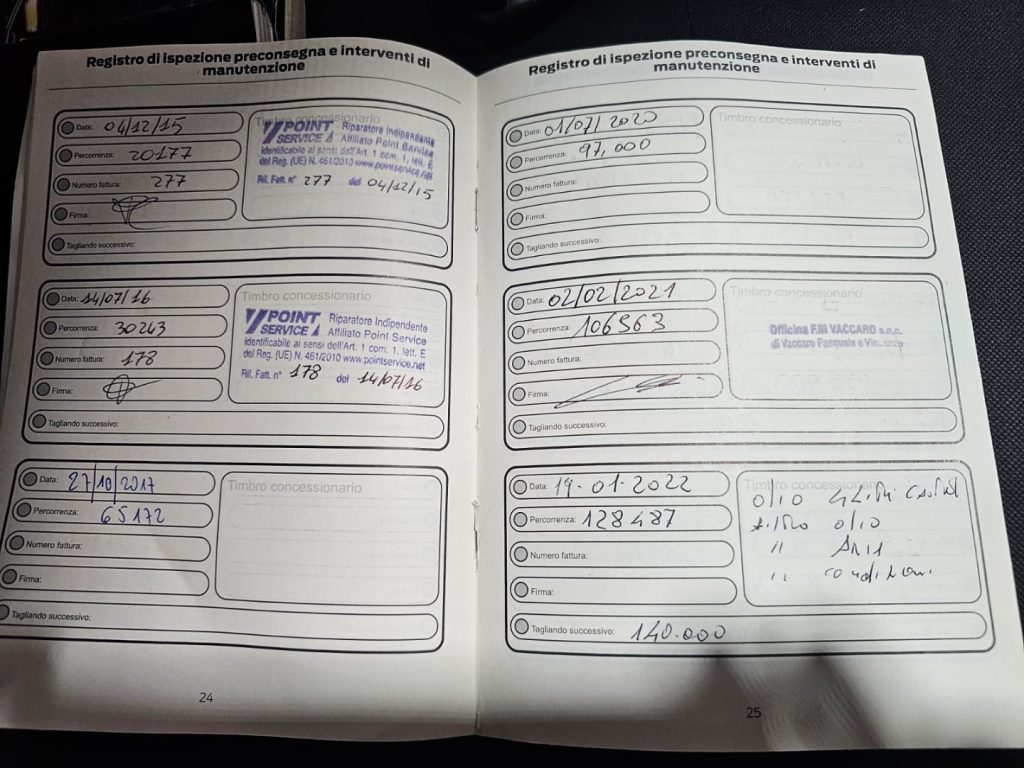 Registro di ispezione preconsegna e interventi di
manutenzione
Data: 04/12/15
Percorrenza: 20177
Numero fattura: 277
Firma:
Tagliando successivo:
Timbro concessionario
POINT
SERVICE
Riparatore Indipendente
Affiliato Point Service
identificabile ai sensi dell'Art. 1 com. 1, lett. E
del Reg. (UE) N. 461/2010 www.pointservice.net
Rif. Fatt. n° 277 del 04/12/15
Data: 14/07/16
Percorrenza: 30243
Numero fattura: 178
Firma:
Tagliando successivo:
Timbro concessionario
POINT
SERVICE
Riparatore Indipendente
Affiliato Point Service
identificabile ai sensi dell'Art. 1 com. 1, lett. E
del Reg. (UE) N. 461/2010 www.pointservice.net
Rif. Fatt. n° 178 del 14/07/16
Data: 27/10/2017
Percorrenza: 65172
Numero fattura:
Firma:
Tagliando successivo:
Timbro concessionario
24
Registro di ispezione preconsegna e interventi di
manutenzione
Data: 01/07/2020
Percorrenza: 97,000
Numero fattura:
Firma:
Tagliando successivo:
Timbro concessionario
Data: 02/02/2021
Percorrenza: 106563
Numero fattura:
Firma:
Tagliando successivo:
Timbro concessionario
Officina F.lli VACCARO s.n.c.
di Vaccaro Pasquale e Vincenzo
Data: 19.01.2022
Percorrenza: 128487
Numero fattura:
Firma:
Tagliando successivo: 140.000
Timbro concessionario
olio
olio
"
"
25